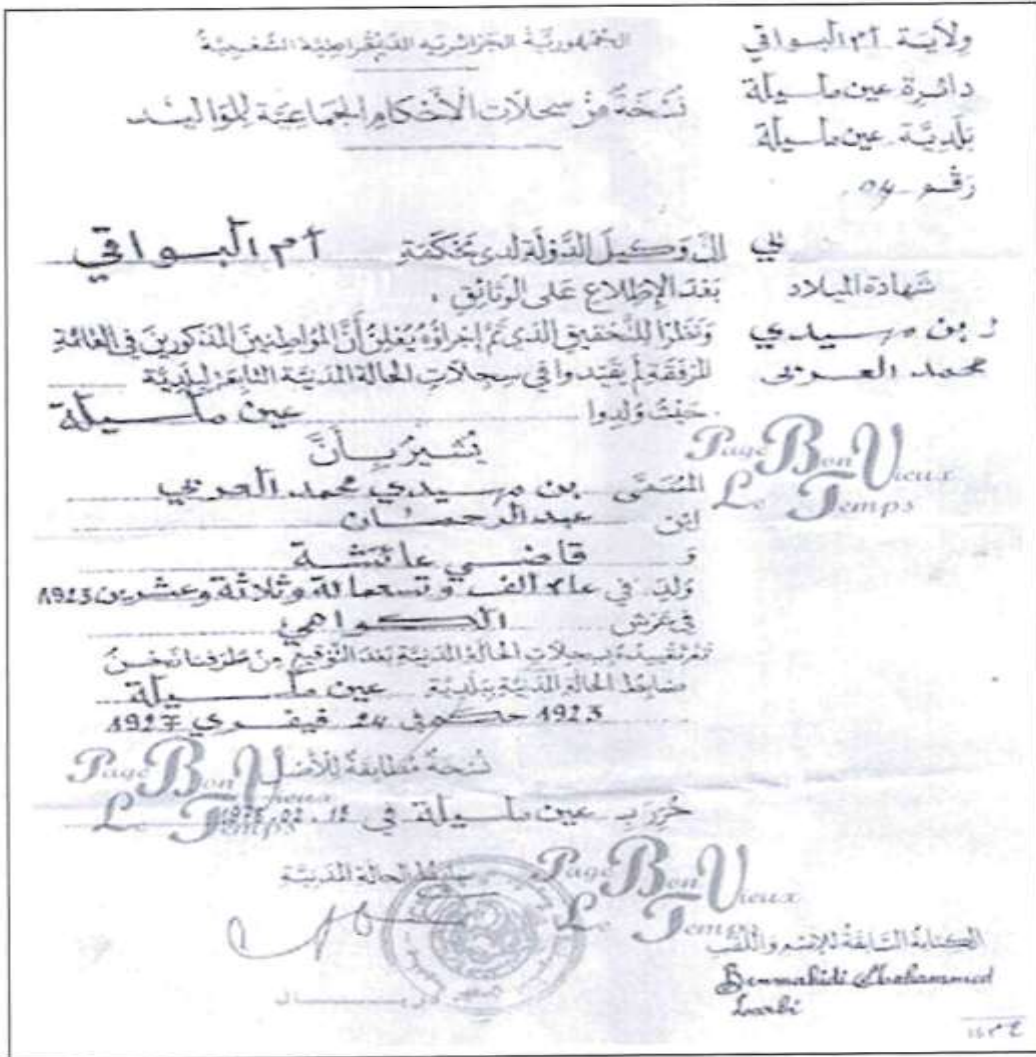 الجمهورية الجزائرية الديمقراطية الشعبية
ولاية أم البواقي
دائرة عين مليلة
بلدية عين مليلة
رقم 04
نسخة من سجلات الأحكام الجماعية للمواليد
شهادة الميلاد
بن مهيدي
محمد العربي
إن وكيل الدولة لدى محكمة أم البواقي
بعد الإطلاع على الوثائق ،
ونظرا للتحقيق الذي تم إجراؤه يعلن أن المواطنين المذكورين في القائمة
المرفقة لم يقيدوا في سجلات الحالة المدنية التابعة لبلدية
حيث ولدوا عين مليلة
نشير بأن
المسمى بن مهيدي محمد العربي
ابن عبد الرحمان
و قاضي عائشة
ولد في عام الف و تسعمائة وثلاثة وعشرين 1923
في عرش الكواهي
تم تقييده بسجلات الحالة المدنية بعد التوقيع من طرفنا نحن
ضابط الحالة المدنية ببلدية عين مليلة
1923 حكم في 24 فيفري 1927
نسخة مطابقة للأصل
حرر ب عين مليلة في
ضابط الحالة المدنية
الكتابة السابقة للإسم واللقب
Benmahidi Mohammed
Larbi
Page Bon Vieux
Le Temps
Page Bon Vieux
Le Temps
Page Bon Vieux
Le Temps